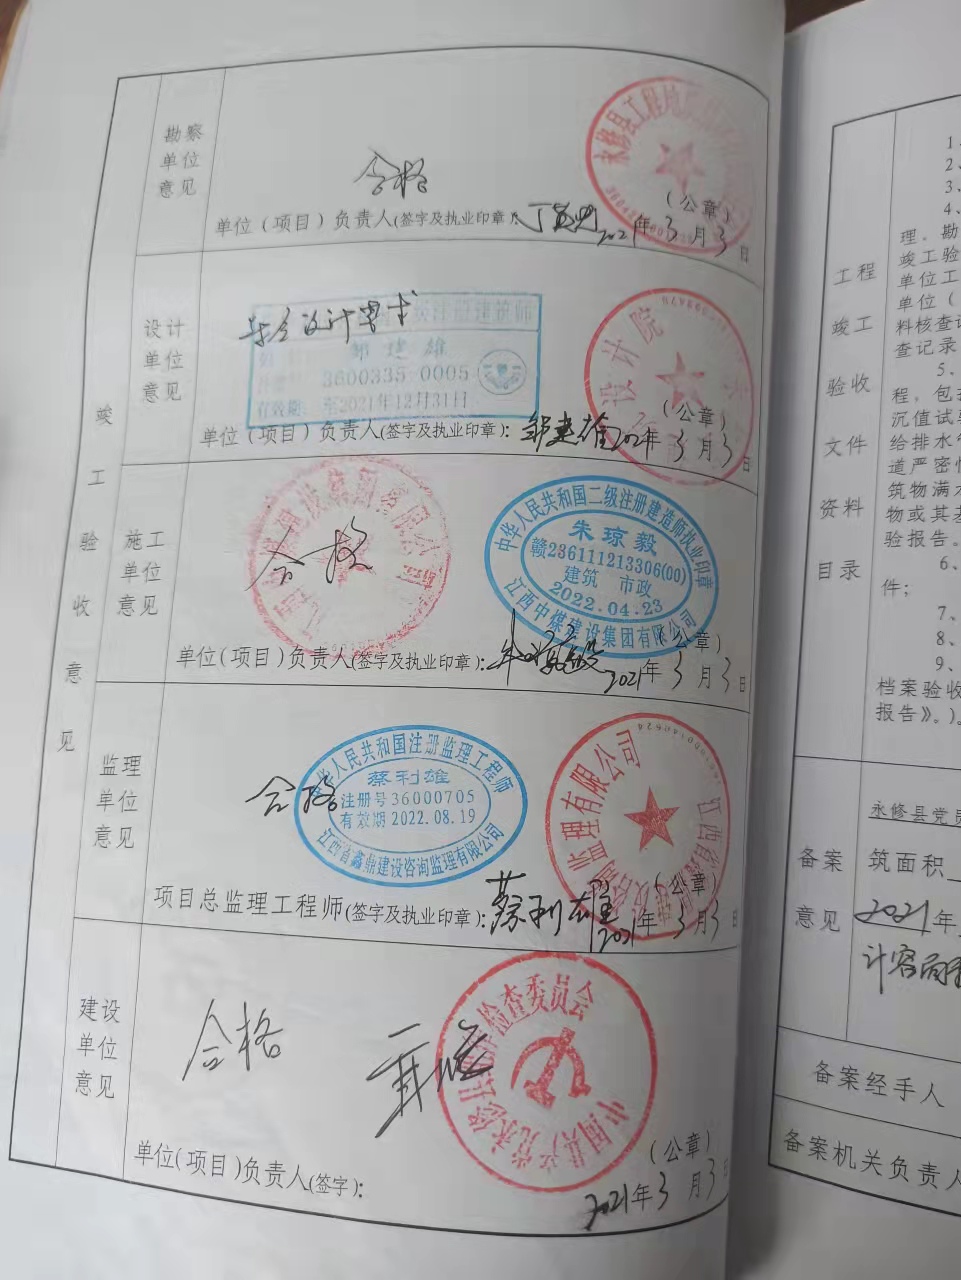 竣工验收意见
勘察单位意见
合格
单位(项目)负责人(签字及执业印章):
2021年3月3日
(公章)
永修县工程地质
设计单位意见
符合设计要求
注册建筑师
邹建雄
3600335 0005
有效期: 至2021年12月31日
设计院
(公章)
单位(项目)负责人(签字及执业印章):邹建雄2021年3月3日
施工单位意见
合格
中华人民共和国二级注册建造师执业印章
朱琼毅
赣236111213306(00)
建筑 市政
2022.04.23
江西中煤建设集团有限公司
(公章)
单位(项目)负责人(签字及执业印章):朱琼毅
2021年3月3日
监理单位意见
合格
中华人民共和国注册监理工程师
蔡利雄
注册号36000705
有效期 2022.08.19
江西省鑫鼎建设咨询监理有限公司
监理有限公司
(公章)
项目总监理工程师(签字及执业印章):蔡利雄
2021年3月3日
建设单位意见
合格
检查委员会
中国共产党永修县
(公章)
单位(项目)负责人(签字):
2021年3月3日
工程竣工验收文件资料目录
1、
2、
3、
4、
理、勘
竣工验
单位工
单位(
料核查记
查记录
5、
程,包
沉值试
给排水
道严密
筑物满水
物或其
验报告。
6、
件;
7、
8、
9、
档案验收
报告》。)。
备案意见
永修县党
筑面积
2021年
备案经手人
备案机关负责人